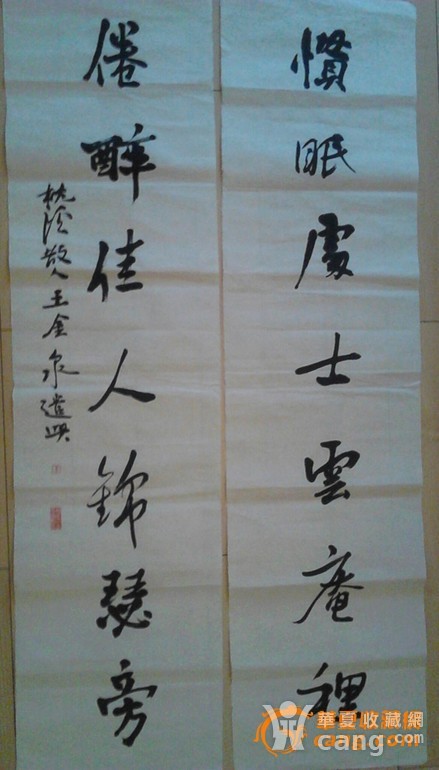 慣眠處士雲庵裡
倦醉佳人錦瑟旁
枕陰散人王金泉遣興
華夏收藏網
cang.com